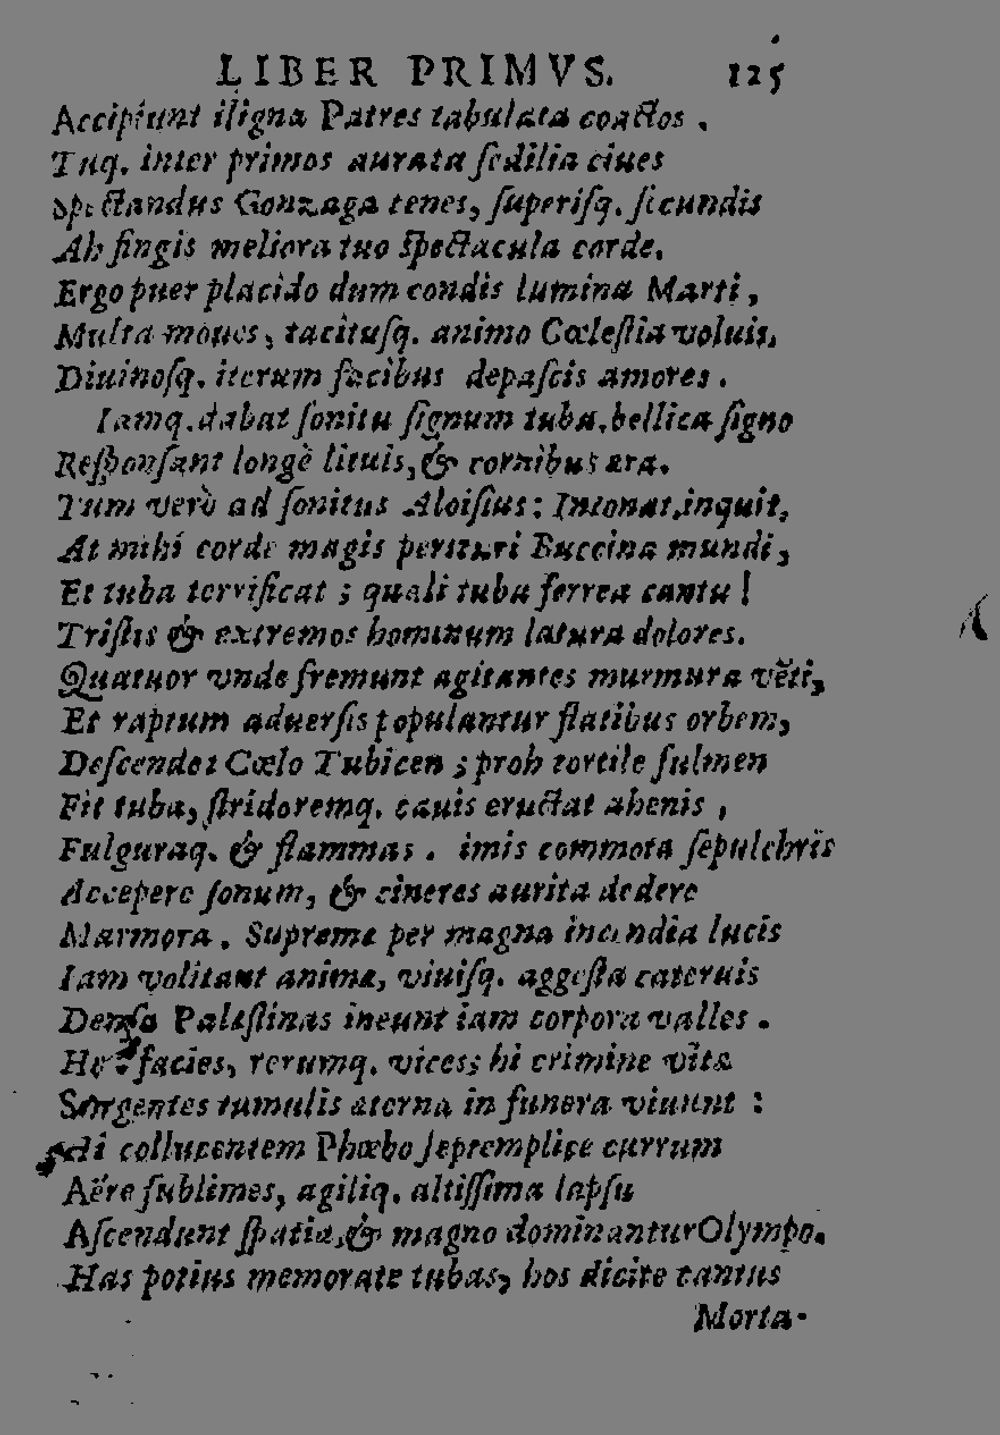 LIBER PRIMVS. 125
Accipiunt iligna Patres tabulata coactos.
Tuq. inter primos aurata ſedilia ciues
Spectandus Gonzaga tenes, ſuperiſq. ſecundis
Ah fingis meliora tuo ſpectacula corde.
Ergo puer placido dum condis lumina Marti,
Multa moues, tacituſq. animo Cœleſtia voluis,
Diuinoſq. iterum facibus depaſcis amores.
Iamq. dabat ſonitu ſignum tuba, bellica ſigno
Reſponſant longè lituis, & cornibus æra.
Tum verò ad ſonitus Aloiſius: Intonat, inquit,
At mihi corde magis perituri Buccina mundi,
Et tuba terrificat; quali tuba ferrea cantu!
Triſtis & extremos hominum latura dolores.
Quatuor vnde fremunt agitantes murmura vẽti,
Et raptum aduerſis populantur flatibus orbem,
Deſcendet Cœlo Tubicen; proh tortile fulmen
Fit tuba, ſtridoremq. cauis eructat ahenis,
Fulguraq. & flammas. imis commota ſepulchris
Accepere ſonum, & cineres aurita dedere
Marmora. Supremæ per magna incendia lucis
Iam volitant animæ, viuiſq. aggeſta cateruis
Denſa Paleſtinas ineunt iam corpora valles.
facies, rerumq. vices; hi crimine vitæ
Surgentes tumulis æterna in funera viuunt:
Hi collucentem Phœbo ſeptemplice currum
Aëre ſublimes, agiliq. altiſſima lapſu
Aſcendunt ſpatia, & magno dominantur Olympo.
Has potius memorate tubas, hos dicite cantus
Morta-